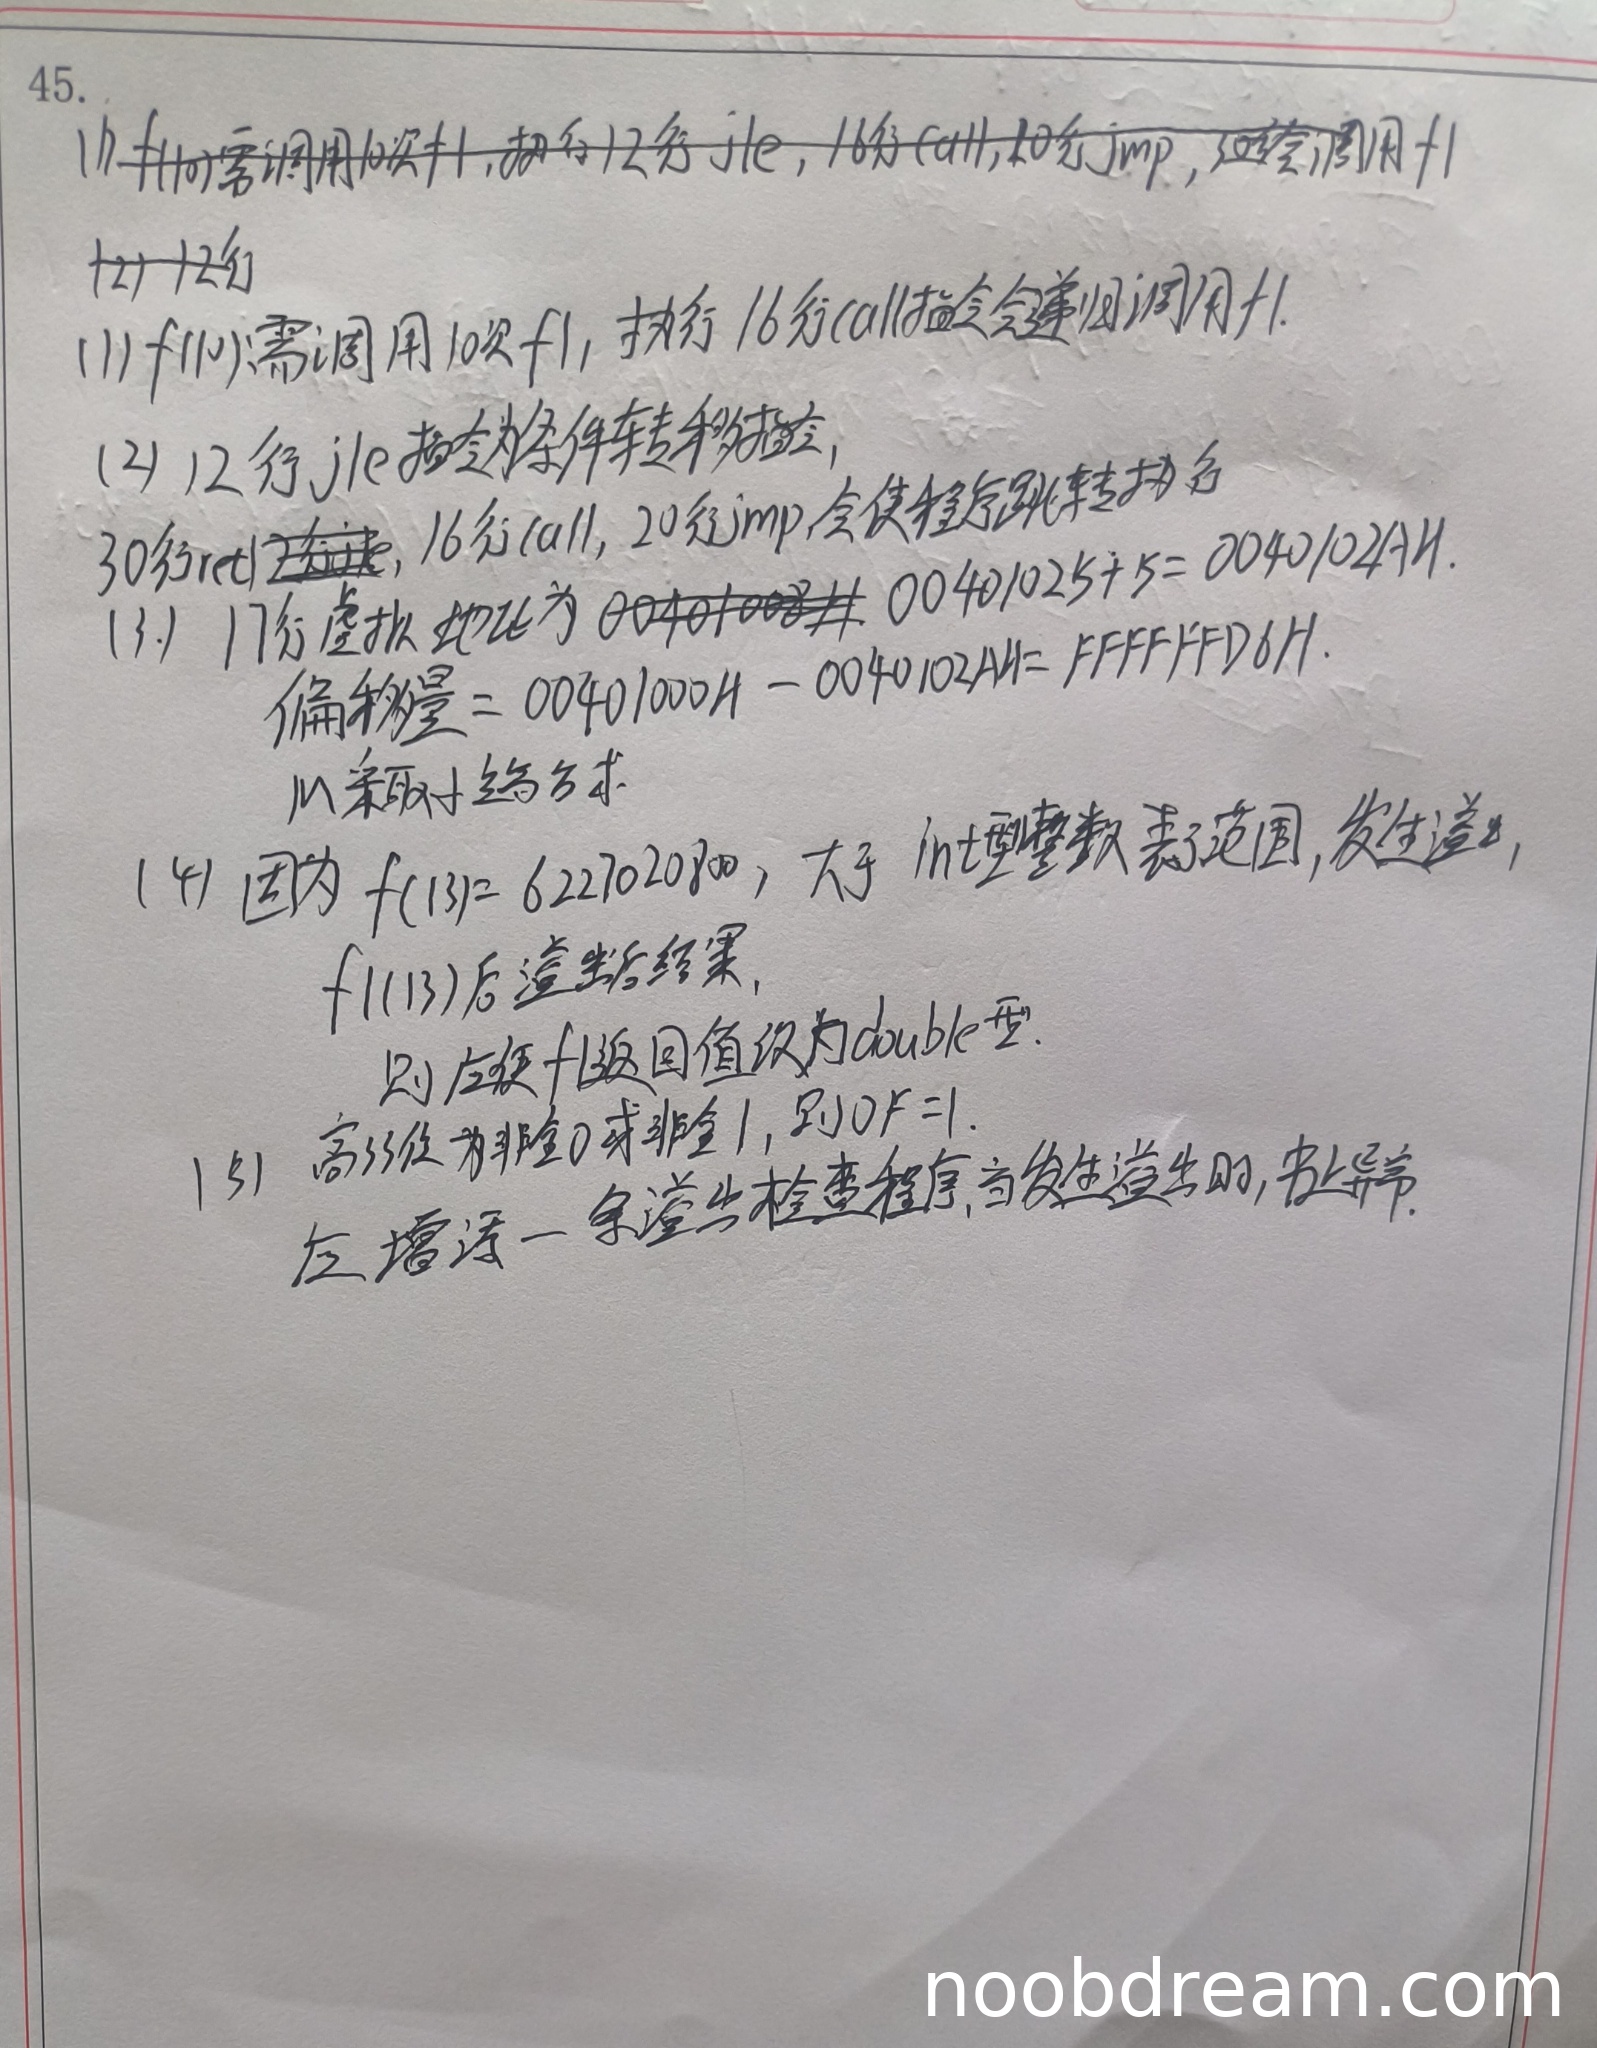 45.
(1) f(10)需调用10次f1,执行12行jle,16行call,20行jmp,调用f1
(2) 12行
(1) f(10)需调用10次f1,执行16行call指令会递归调用f1.
(2) 12行jle指令为条件转移指令,
30行ret 12行jle, 16行call, 20行jmp,会使程序跳转执行
(3.) 17行虚拟地址为 00401008H 00401025+5=0040102AH.
偏移量=00401000H-0040102AH=FFFFFFD6H.
采取小端方式
(4) 因为 f(13)=6227020800,大于 int型整数表示范围,发生溢出,
f1(13)后溢出后结果,
则应使f1返回值设为double型.
(5) 高33位为非全0或非全1,则OF=1.
应增添一条溢出检查程序,当发生溢出时,异常.
noobdream.com